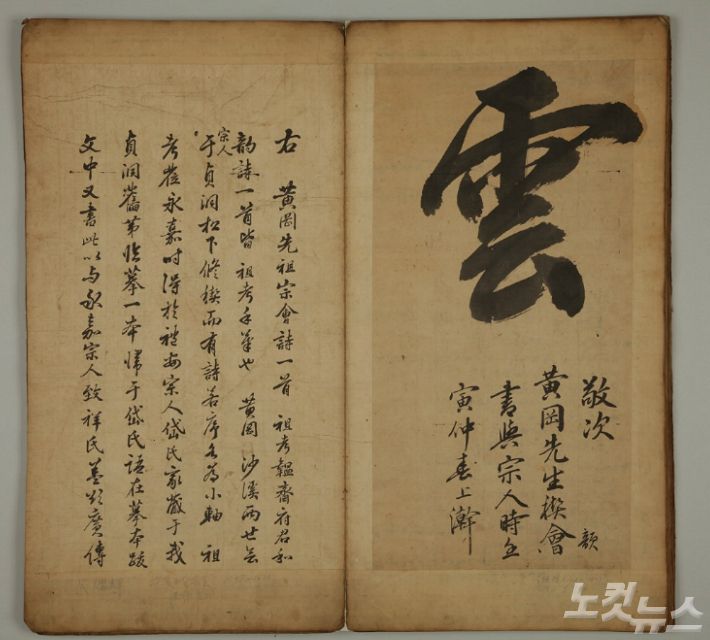 雲
敬次
黄岡先生稧會韻
書與宗人時壬
寅仲春上澣
右 黄岡先祖宗會詩一首 祖考韞齋府君和
韵詩一首皆 祖考手筆也 黄岡 沙溪兩世
宗人
于貞洞松下修稧而有詩若序名為小軸 祖
考莅永嘉時得於 宗人岱氏家 于我
貞洞舊第临摹一本歸于岱氏語在摹本跋
文中又書此以与永嘉宗人致祥氏盖欲廣傳
노컷
뉴스